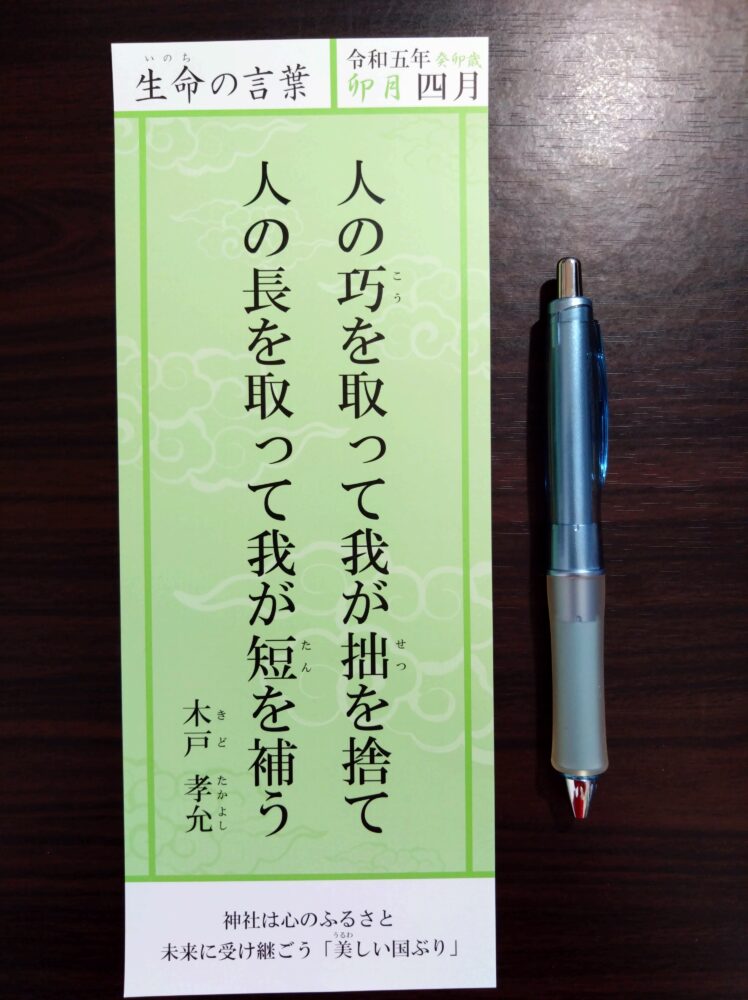 生命の言葉
いのち
令和五年 癸卯歳
卯月 四月
人の巧を取って我が拙を捨て
こう
せつ
人の長を取って我が短を補う
たん
木戸 孝允
きど たかよし
神社は心のふるさと
未来に受け継ごう「美しい国ぶり」
うるわ